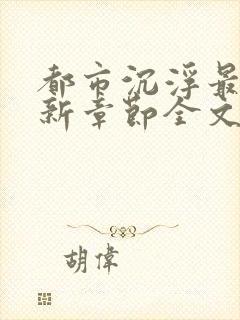 都市沉浮最
新章節全文
胡偉